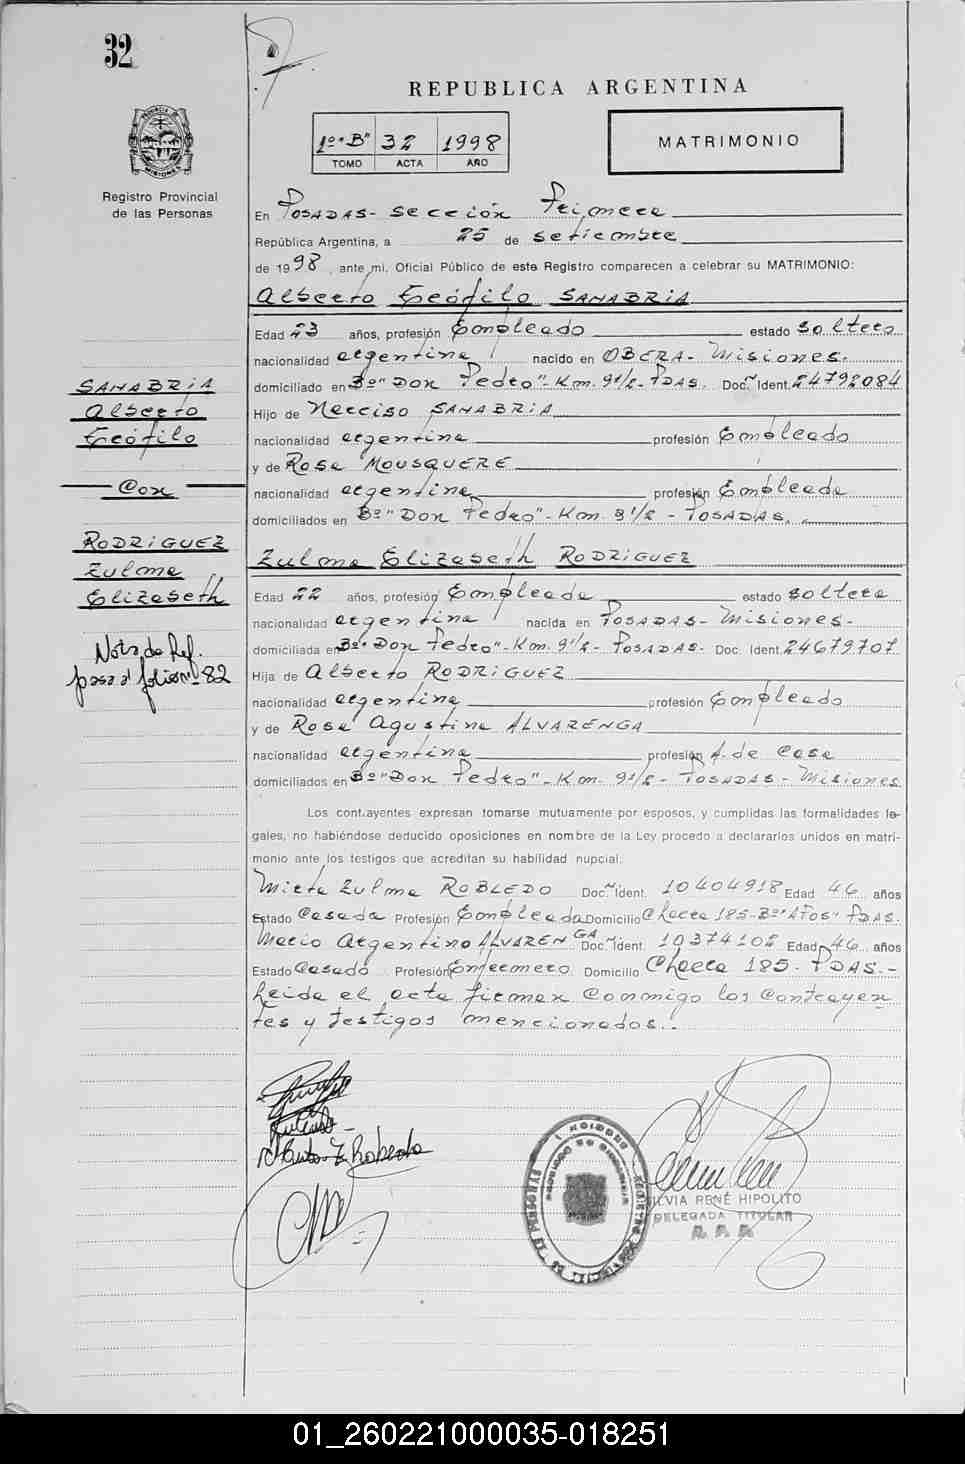 32
REPUBLICA ARGENTINA
1º "B" 32 1998
TOMO ACTA AÑO
MATRIMONIO
Registro Provincial
de las Personas
En POSADAS - Sección Primera
República Argentina, a 25 de setiembre
de 1998, ante mí, Oficial Público de este Registro comparecen a celebrar su MATRIMONIO:
Alberto Teófilo SANABRIA
Edad 23 años, profesión Empleado estado soltero
nacionalidad argentina nacido en OBERA - Misiones.
domiciliado en Bº "Don Pedro" - Km. 9 1/2 - PDAS. Doc. Ident. 24792084
Hijo de Narciso SANABRIA
nacionalidad argentina profesión Empleado
y de Rosa MOUSQUERE
nacionalidad argentina profesión Empleada
domiciliados en Bº "Don Pedro" - Km. 9 1/2 - POSADAS.
Zulma Elizabeth RODRIGUEZ
Edad 22 años, profesión Empleada estado soltera
nacionalidad argentina nacida en POSADAS - Misiones -
domiciliada en Bº "Don Pedro" - Km. 9 1/2 - POSADAS - Doc. Ident. 24679707
Hija de Alberto RODRIGUEZ
nacionalidad argentina profesión Empleado
y de Rosa Agustina ALVARENGA
nacionalidad argentina profesión A. de Casa
domiciliados en Bº "Don Pedro" - Km. 9 1/2 - POSADAS - Misiones
Los contrayentes expresan tomarse mutuamente por esposos, y cumplidas las formalidades le-
gales, no habiéndose deducido oposiciones en nombre de la Ley procedo a declararlos unidos en matri-
monio ante los testigos que acreditan su habilidad nupcial.
Mirta Zulma ROBLEDO Doc. Ident. 10404918 Edad 46 años
Estado Casada Profesión Empleada Domicilio Chacra 185 - Bº "A Pos" PDAS.
Mario Argentino ALVARENGA Doc. Ident. 10374102 Edad 46 años
Estado Casado Profesión Enfermero Domicilio Chacra 185 - PDAS. -
Leida el acta firman conmigo los contrayen
tes y testigos mencionados. -
SANABRIA
Alberto
Teófilo
Con
RODRIGUEZ
Zulma
Elizabeth
Nota de Ref.
pasa a folio nº 82
SILVIA RENÉ HIPOLITO
DELEGADA TITULAR
01_260221000035-018251